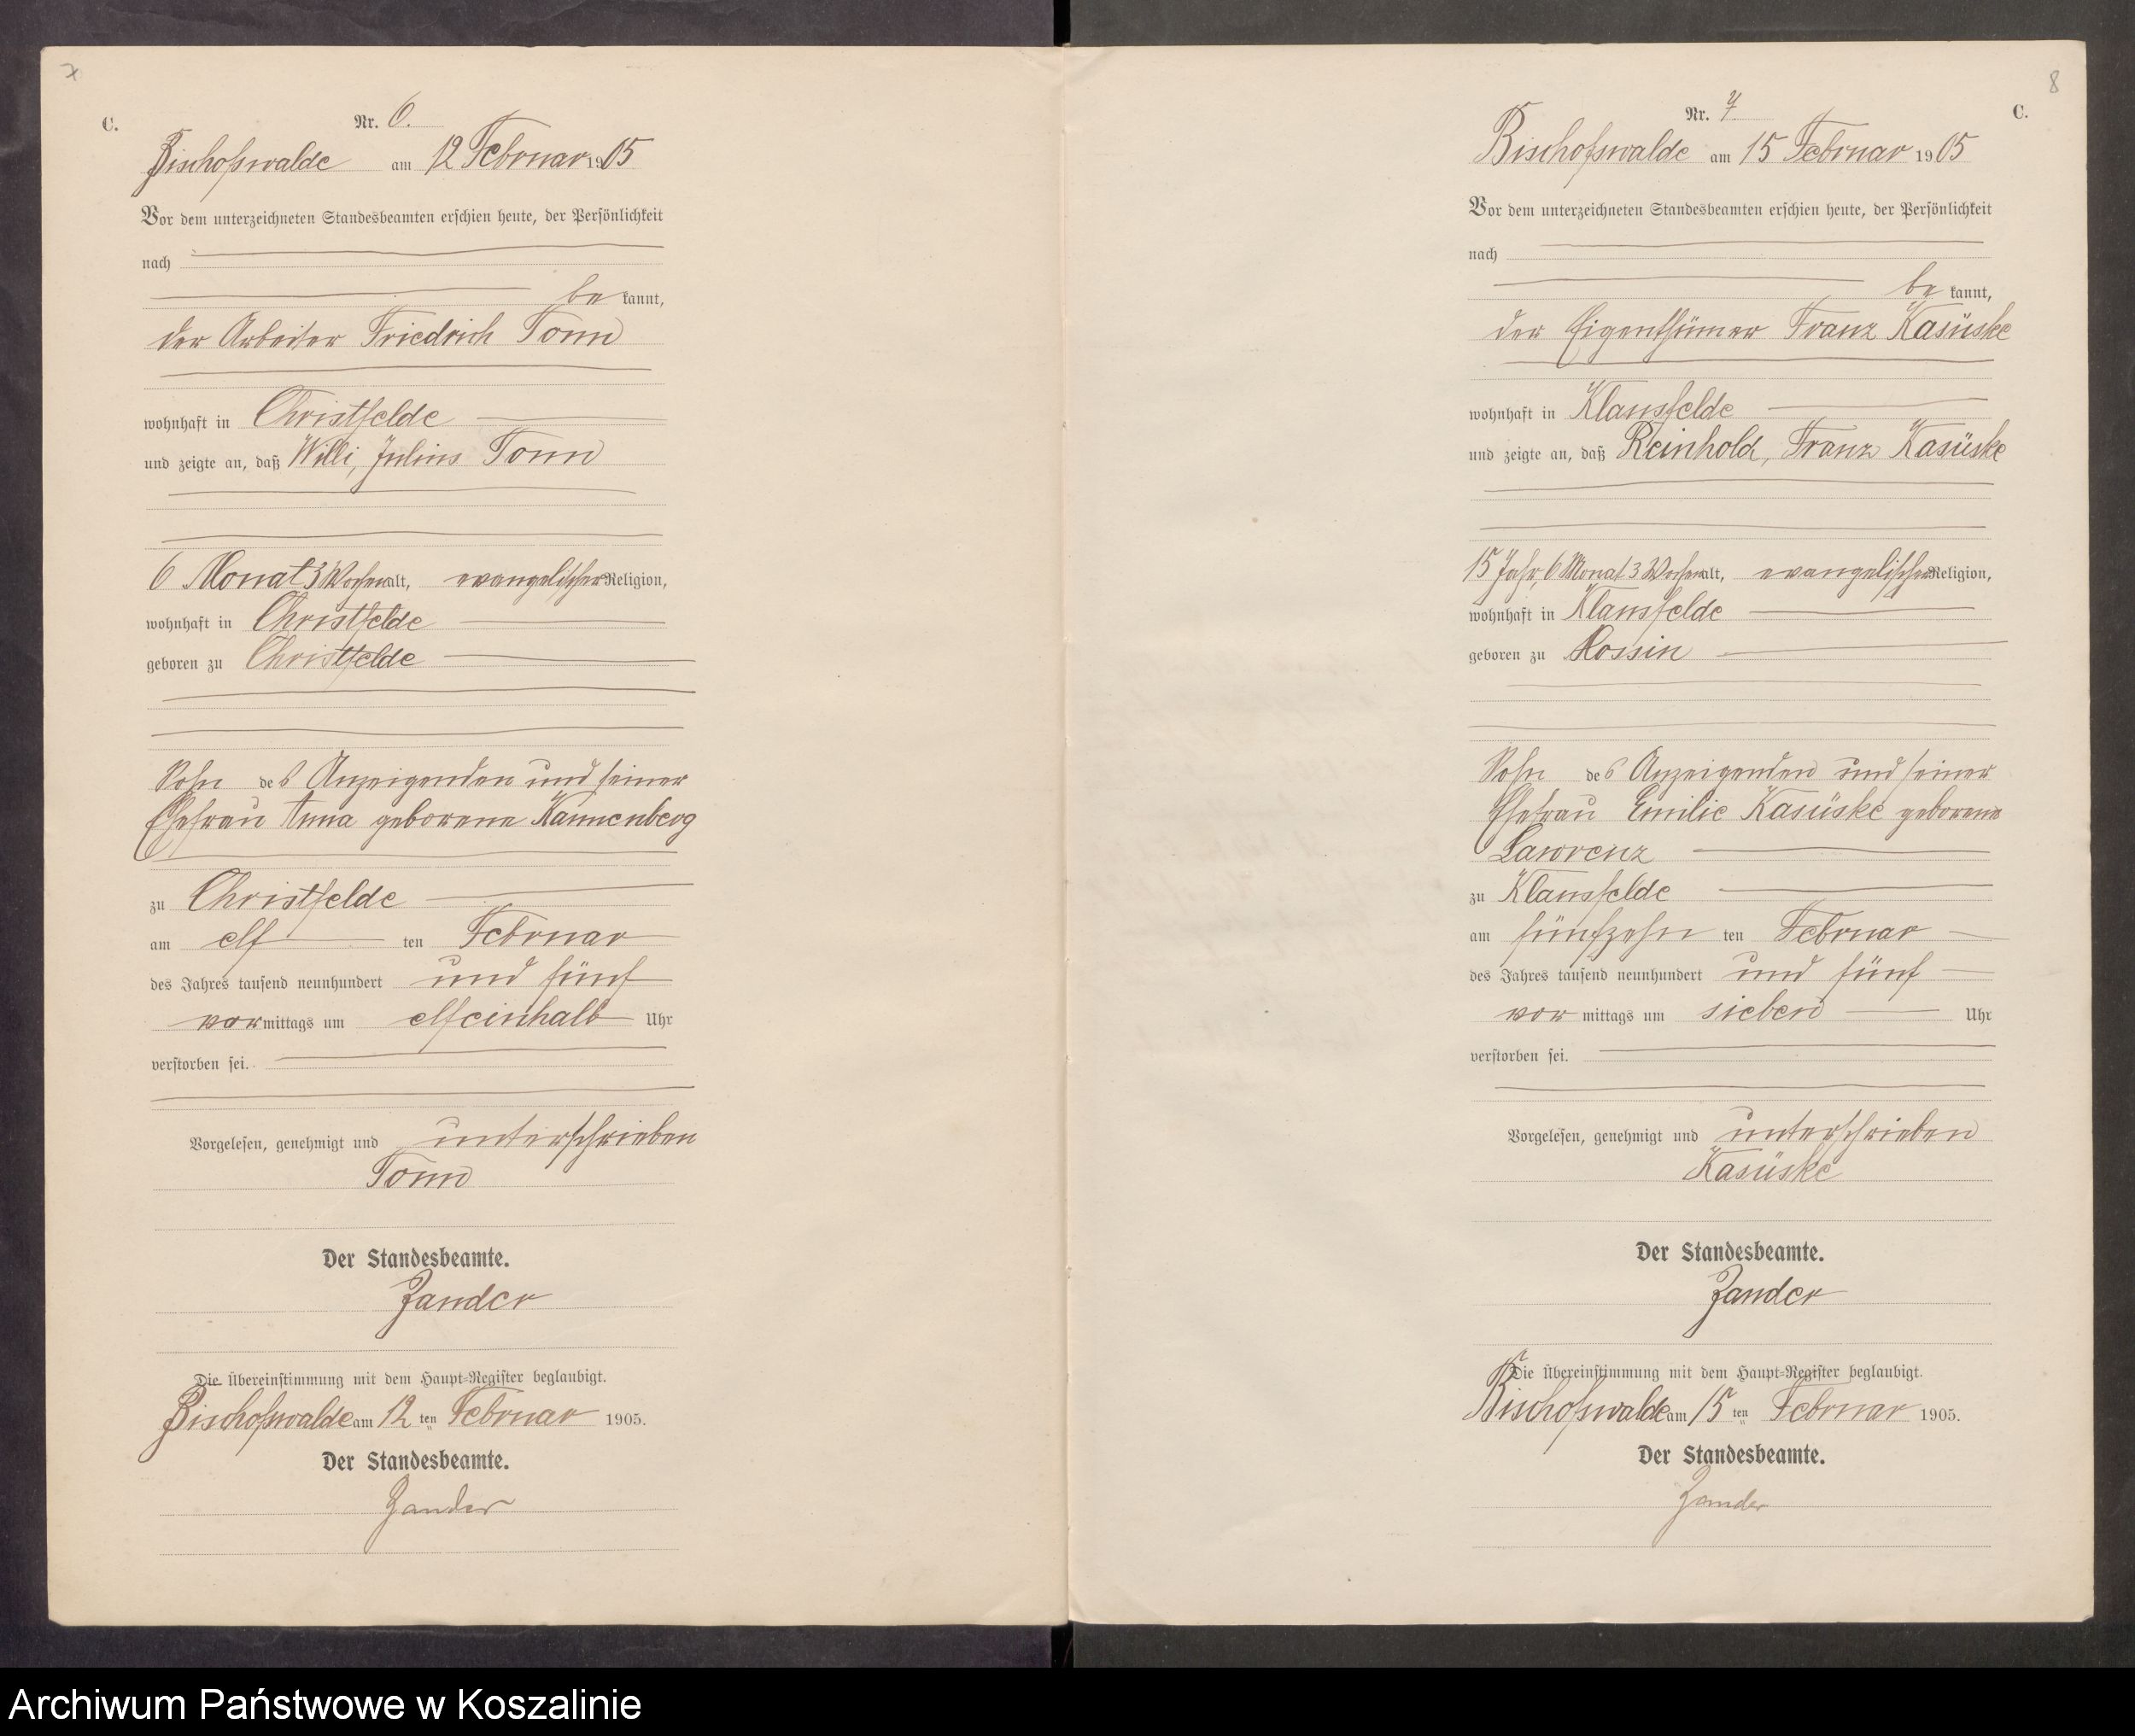 7
C.
Nr. 6.
Bischofswalde am 12 Februar 1905
Vor dem unterzeichneten Standesbeamten erschien heute, der Persönlichkeit
nach
be kannt,
der Arbeiter Friedrich Tonn
wohnhaft in Christfelde
und zeigte an, daß Willi, Julius Tonn
6 Monat 3 Wochen alt, evangelischer Religion,
wohnhaft in Christfelde
geboren zu Christfelde
Sohn des Anzeigenden und seiner
Ehefrau Anna geborene Kannenberg
zu Christfelde
am elf ten Februar
des Jahres tausend neunhundert und fünf
vor mittags um elfeinhalb Uhr
verstorben sei.
Vorgelesen, genehmigt und unterschrieben
Tonn
Der Standesbeamte.
Zander
Die Übereinstimmung mit dem Haupt-Register beglaubigt.
Bischofswalde am 12 ten Februar 1905.
Der Standesbeamte.
Zander
8
C.
Nr. 7
Bischofswalde am 15 Februar 1905
Vor dem unterzeichneten Standesbeamten erschien heute, der Persönlichkeit
nach
be kannt,
der Eigenthümer Franz Kasüske
wohnhaft in Klausfelde
und zeigte an, daß Reinhold, Franz Kasüske
15 Jahr, 6 Monat 3 Wochen alt, evangelischer Religion,
wohnhaft in Klausfelde
geboren zu Rossin
Sohn des Anzeigenden und seiner
Ehefrau Emilie Kasüske geborene
Lawrenz
zu Klausfelde
am fünfzehn ten Februar
des Jahres tausend neunhundert und fünf
vor mittags um sieben Uhr
verstorben sei.
Vorgelesen, genehmigt und unterschrieben
Kasüske
Der Standesbeamte.
Zander
Die Übereinstimmung mit dem Haupt-Register beglaubigt.
Bischofswalde am 15 ten Februar 1905.
Der Standesbeamte.
Zander
Archiwum Państwowe w Koszalinie